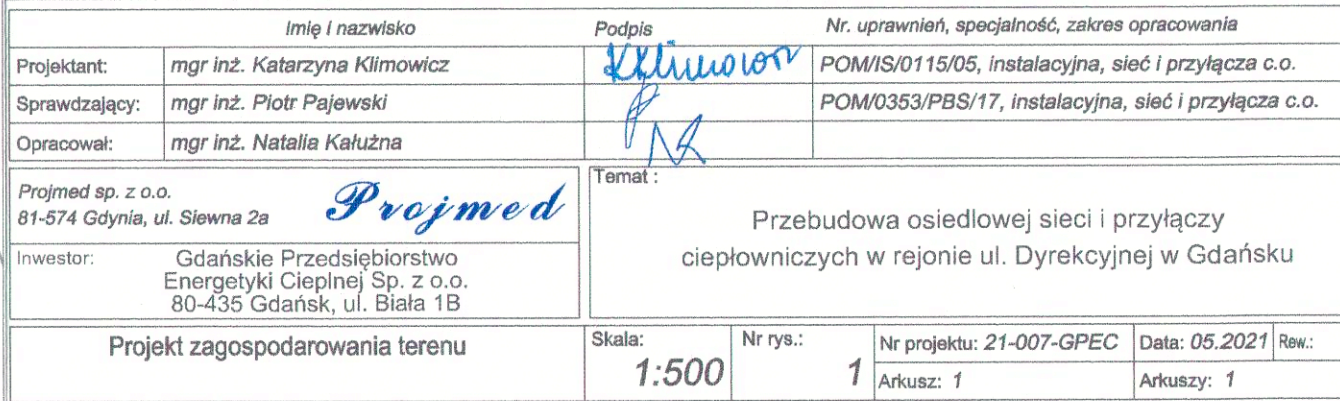 Imię i nazwisko Podpis Nr. uprawnień, specjalność, zakres opracowania
Projektant: mgr inż. Katarzyna Klimowicz KKlimowicz POM/IS/0115/05, instalacyjna, sieć i przyłącza c.o.
Sprawdzający: mgr inż. Piotr Pajewski POM/0353/PBS/17, instalacyjna, sieć i przyłącza c.o.
Opracował: mgr inż. Natalia Kałużna
Projmed sp. z o.o.
81-574 Gdynia, ul. Siewna 2a
Projmed
Inwestor: Gdańskie Przedsiębiorstwo
Energetyki Cieplnej Sp. z o.o.
80-435 Gdańsk, ul. Biała 1B
Temat :
Przebudowa osiedlowej sieci i przyłączy
ciepłowniczych w rejonie ul. Dyrekcyjnej w Gdańsku
Projekt zagospodarowania terenu
Skala:
1:500
Nr rys.:
1
Nr projektu: 21-007-GPEC Data: 05.2021 Rew.:
Arkusz: 1 Arkuszy: 1